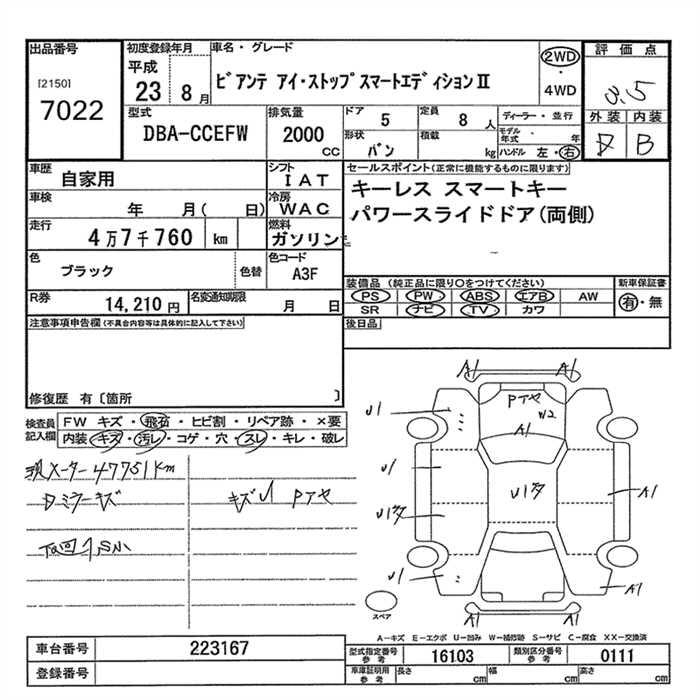 出品番号
[2150]
7022
初度登録年月
平成
23 8 月
車名・グレード
ビアンテ アイ・ストップスマートエディションⅡ
2WD
・
4WD
評価点
3.5
外装 内装
D B
型式
DBA-CCEFW
排気量
2000
cc
ドア 5
定員 8 人
ディーラー・並行
形状
バン
積載
kg
モデル年式 年
ハンドル 左・右
車歴
自家用
シフト
IAT
セールスポイント(正常に機能するものに限ります)
キーレス スマートキー
パワースライドドア(両側)
車検
年 月( 日)
冷房
WAC
走行
4万7千760 km
燃料
ガソリン
色
ブラック
色替
色コード
A3F
装備品 (純正品に限り○をつけてください)
新車保証書
PS PW ABS エアB AW
有・無
SR ナビ TV カワ
R券
14,210 円
名変通知期限
月 日
注意事項申告欄(不具合内容等は具体的に記入して下さい)
後日品
修復歴 有〔箇所 〕
検査員
記入欄
FW キズ・飛石・ヒビ割・リペア跡・×要
内装・キズ・汚レ・コゲ・穴・スレ・キレ・破レ
現メーター47751km
ミラーキズ
キズU Pアセ
A1 A1
Pアセ
W2
A1
U1
U1
U1
A1
U1
A1
A1 A1
スペア
A―キズ E―エクボ U―凹み W―補修跡 S―サビ C―腐食 XX―交換済
車台番号
223167
登録番号
型式指定番号
参考
16103
類別区分番号
参考
0111
車庫証明用
参考
長さ cm
幅 cm
高さ cm